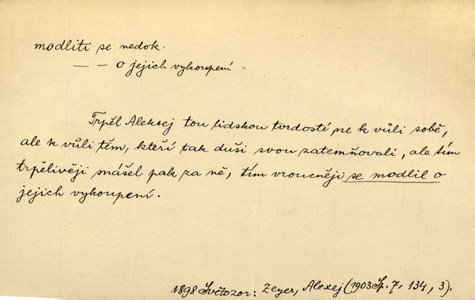 modliti se nedok.
— — o jejich vykoupení
Trpěl Aleksej tou lidskou tvrdostí ne k vůli sobě,
ale k vůli těm, kteří tak duši svou zatemňovali, ale tím
trpělivěji snášel pak za ně, tím vroucněji se modlil o
jejich vykoupení.
1898 Světozor: Zeyer, Alexej (1903 Sp. 7, 134, 3).